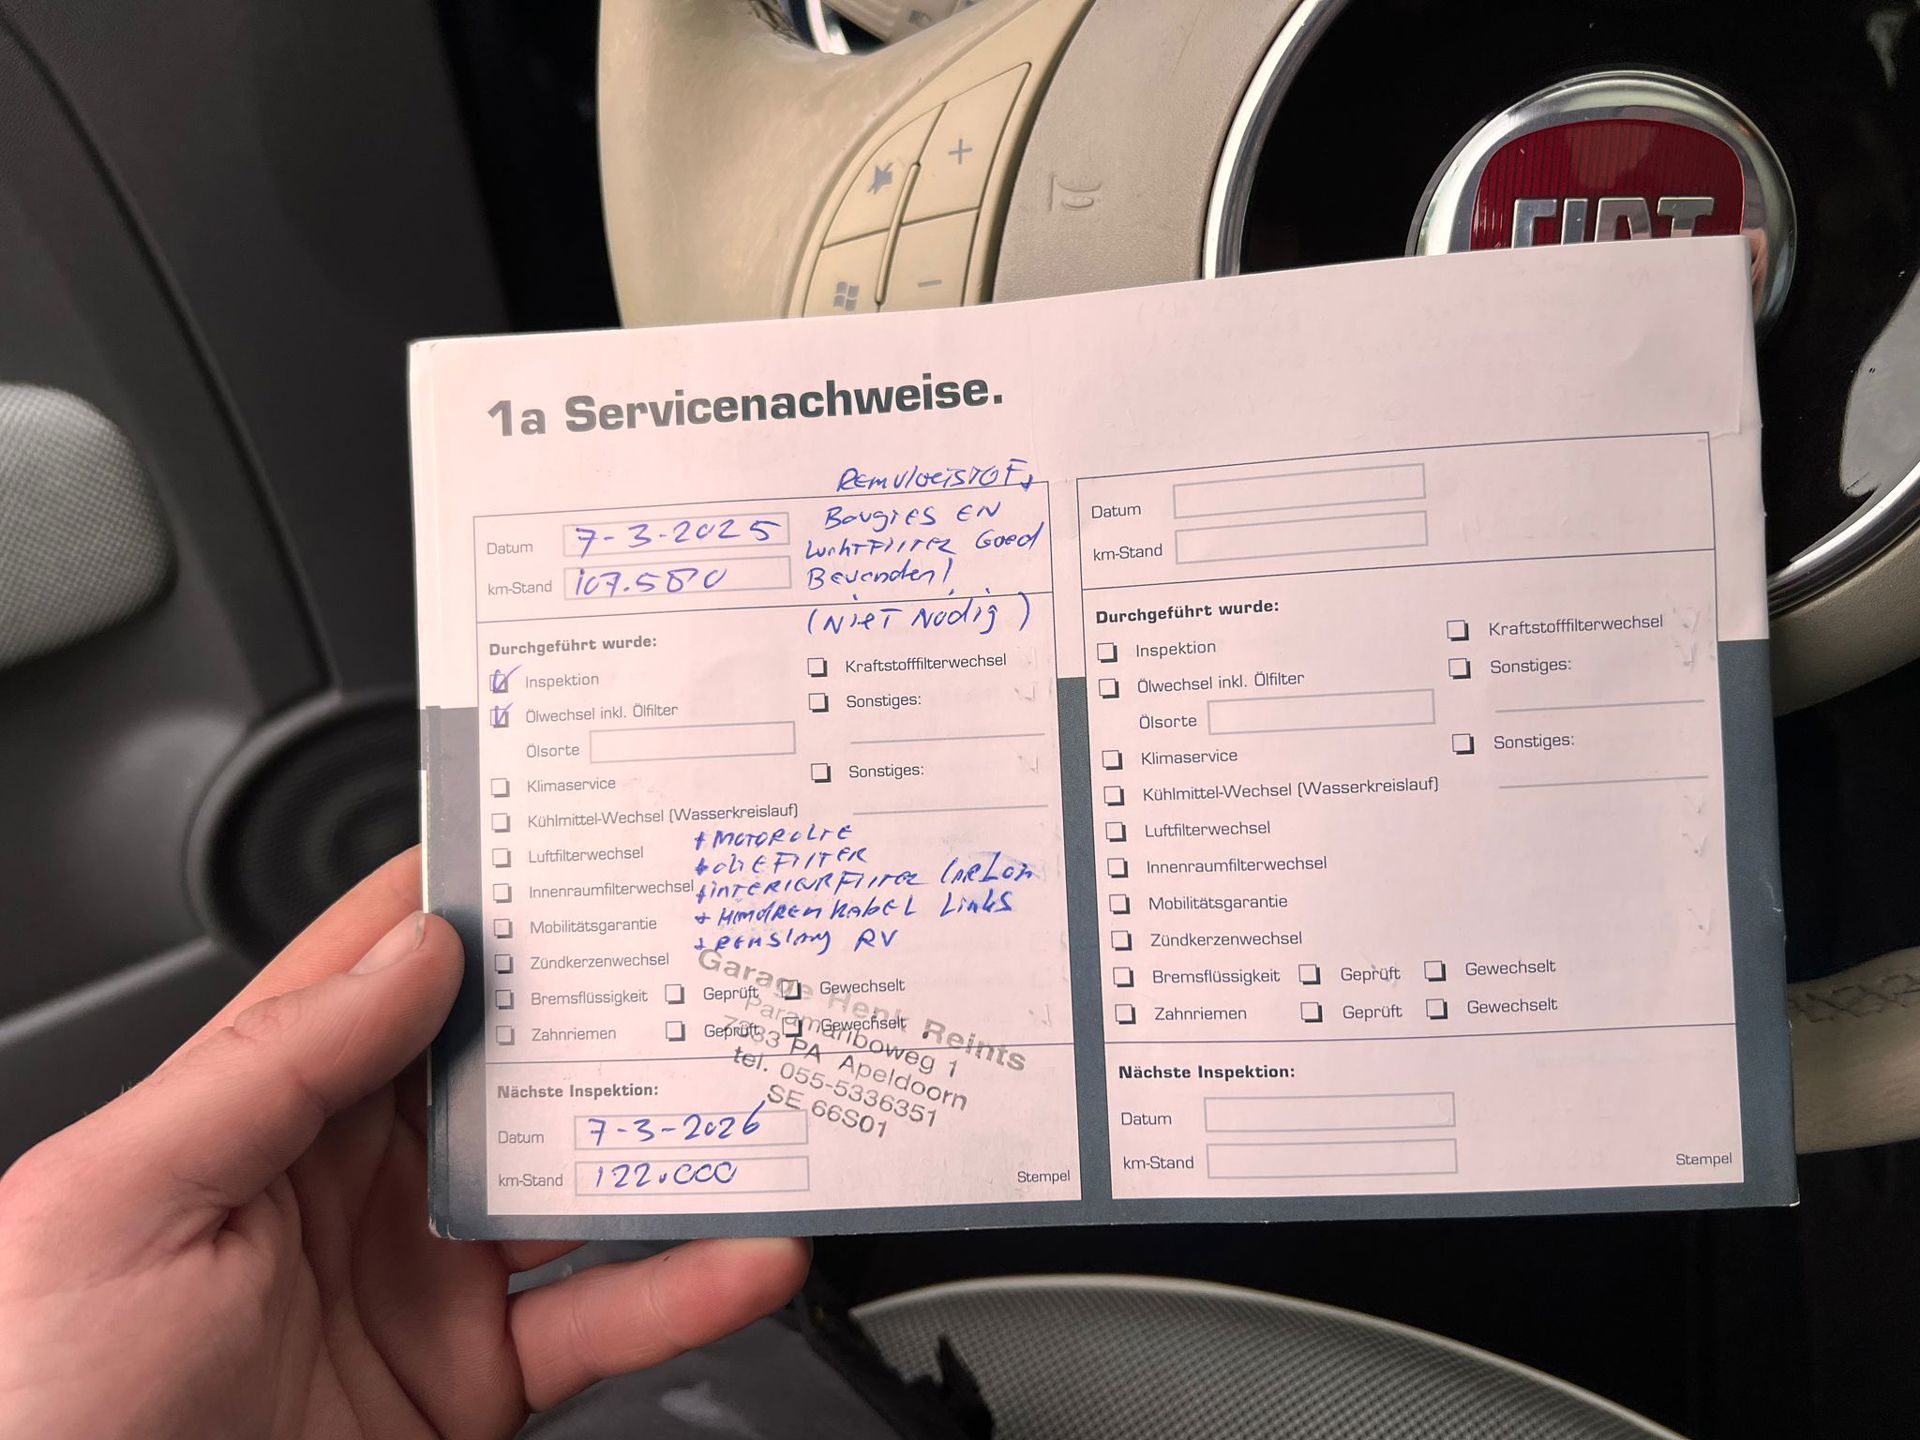 FIAT
1a Servicenachweise.
REMVloeistOF,
Datum 7-3-2025
Bougies EN
LuchtFilter Goed
km-Stand 107.580
Bevonden!
(Niet Nodig)
Durchgeführt wurde:
Inspektion
Kraftstofffilterwechsel
Ölwechsel inkl. Ölfilter
Sonstiges:
Ölsorte
Klimaservice
Sonstiges:
Kühlmittel-Wechsel (Wasserkreislauf)
+ MOTOROLIE
Luftfilterwechsel
+ OLIEFILTER
Innenraumfilterwechsel
+ INTERIEURFILTER
Mobilitätsgarantie
+ HANDREMKABEL LINKS
+ REMSLANG RV
Zündkerzenwechsel
Bremsflüssigkeit Geprüft Gewechselt
Zahnriemen Geprüft Gewechselt
Garage Henk Reints
Paramariboweg 1
7333 PA Apeldoorn
tel. 055-5336351
SE 66S01
Nächste Inspektion:
Datum 7-3-2026
km-Stand 122.000
Stempel
Datum
km-Stand
Durchgeführt wurde:
Inspektion
Kraftstofffilterwechsel
Ölwechsel inkl. Ölfilter
Sonstiges:
Ölsorte
Klimaservice
Sonstiges:
Kühlmittel-Wechsel (Wasserkreislauf)
Luftfilterwechsel
Innenraumfilterwechsel
Mobilitätsgarantie
Zündkerzenwechsel
Bremsflüssigkeit Geprüft Gewechselt
Zahnriemen Geprüft Gewechselt
Nächste Inspektion:
Datum
km-Stand
Stempel